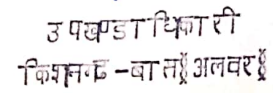 उपखण्डाधिकारी
किशनगढ़-बास (अलवर)